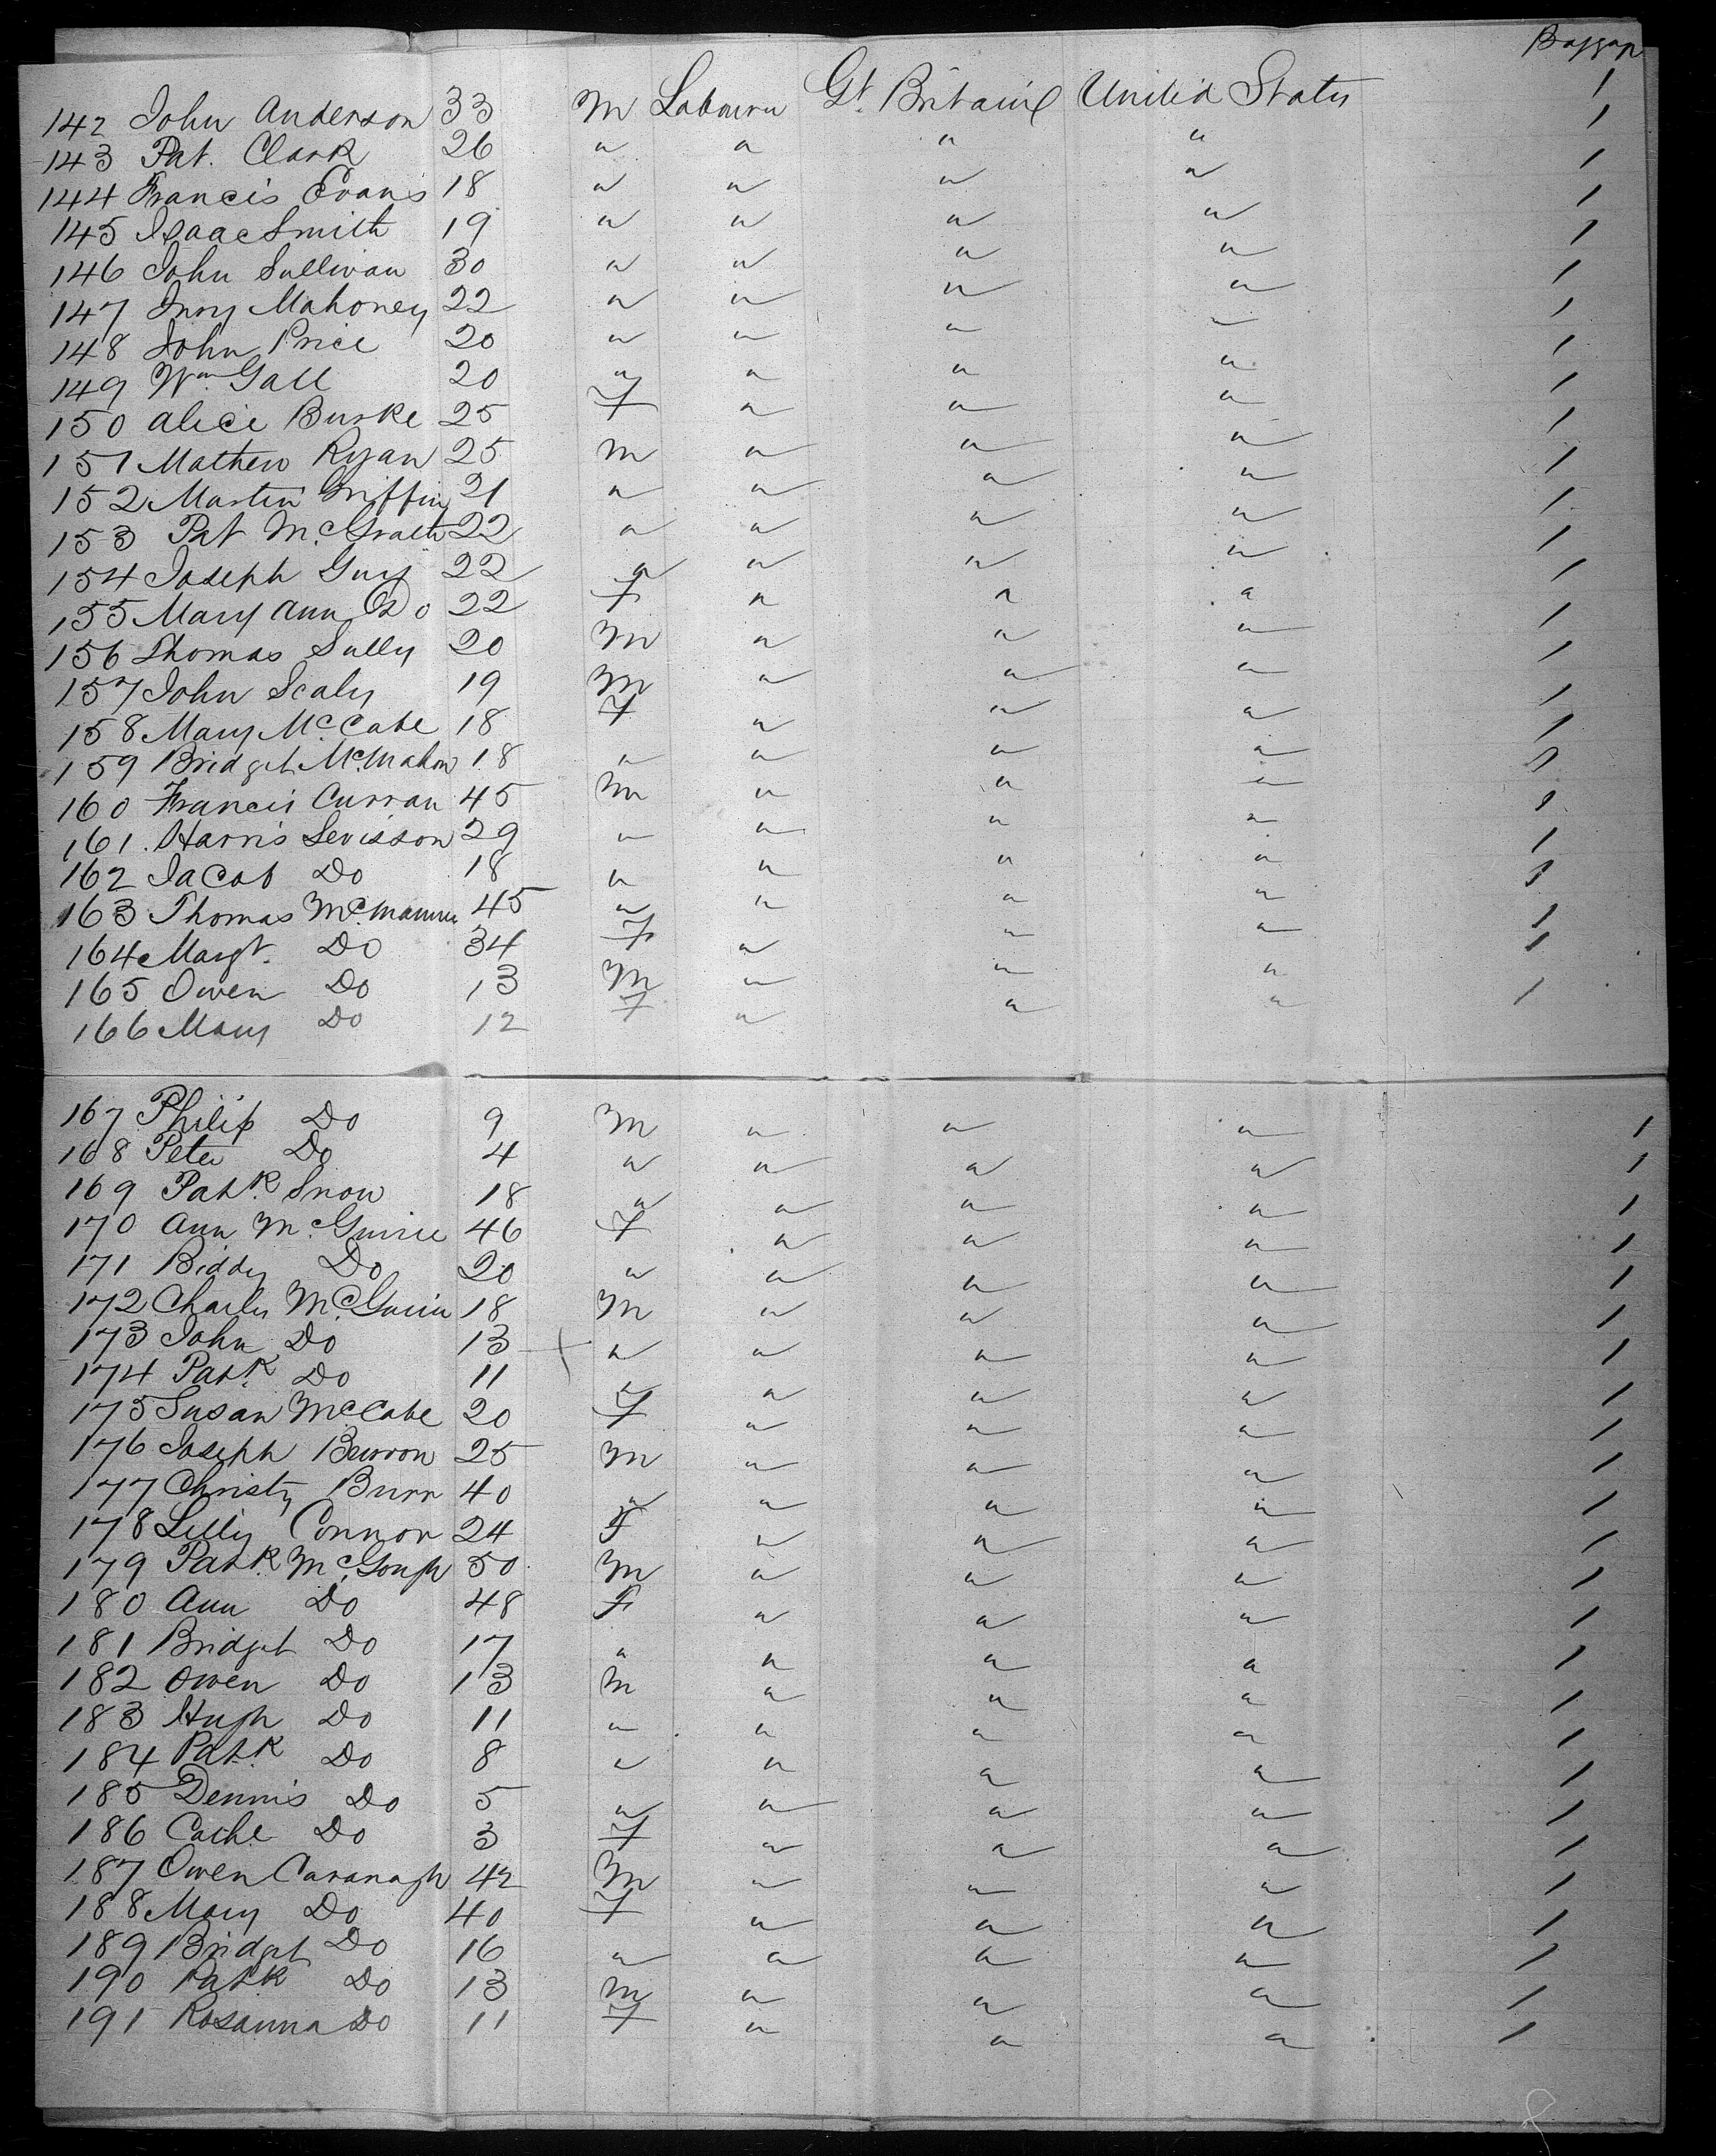 Baggage
142 John Anderson 33 M Labourer Gt. Britain United States 1
143 Pat. Clark 26 " " " " 1
144 Francis Evans 18 " " " " 1
145 Isaac Smith 19 " " " " 1
146 John Sullivan 30 " " " " 1
147 Mahoney 22 " " " " 1
148 John Price 20 " " " " 1
149 Wm Gall 20 " " " " 1
150 Alice Burke 25 F " " " 1
151 Mathew Ryan 25 M " " " 1
152 Martin Griffin 21 " " " " 1
153 Pat McGrath 22 " " " " 1
154 Joseph Guy 22 " " " " 1
155 Mary Ann Do 22 F " " " 1
156 Thomas Sully 20 M " " " 1
157 John Scaly 19 M " " " 1
158 Mary McCabe 18 F " " " 1
159 Bridget McMahon 18 " " " " 1
160 Francis Curran 45 M " " " 1
161. Harris Levisson 29 " " " " 1
162 Jacob Do 18 " " " " 1
163 Thomas 45 " " " " 1
164 Margt. Do 34 F " " " 1
165 Owen Do 13 M " " " 1
166 Mary Do 12 F " " " 1
167 Philip Do 9 M " " " 1
168 Peter Do 4 " " " " 1
169 Patk. Snow 18 " " " " 1
170 Ann McGuire 46 F " " " 1
171 Biddy Do 20 " " " " 1
172 Charles McGuire 18 M " " " 1
173 John Do 13 " " " " 1
174 Patk. Do 11 " " " " 1
175 Susan McCabe 20 F " " " 1
176 Joseph 25 M " " " 1
177 Christy Burr 40 " " " " 1
178 Lilly Connor 24 F " " " 1
179 Patk. McGough 50 M " " " 1
180 Ann Do 48 F " " " 1
181 Bridget Do 17 " " " " 1
182 Owen Do 13 M " " " 1
183 Hugh Do 11 " " " " 1
184 Patk. Do 8 " " " " 1
185 Dennis Do 5 " " " " 1
186 Cathe Do 3 F " " " 1
187 Owen Cavanagh 42 M " " " 1
188 Mary Do 40 F " " " 1
189 Bridget Do 16 " " " " 1
190 Patk Do 13 M " " " 1
191 Rosanna Do 11 F " " " 1